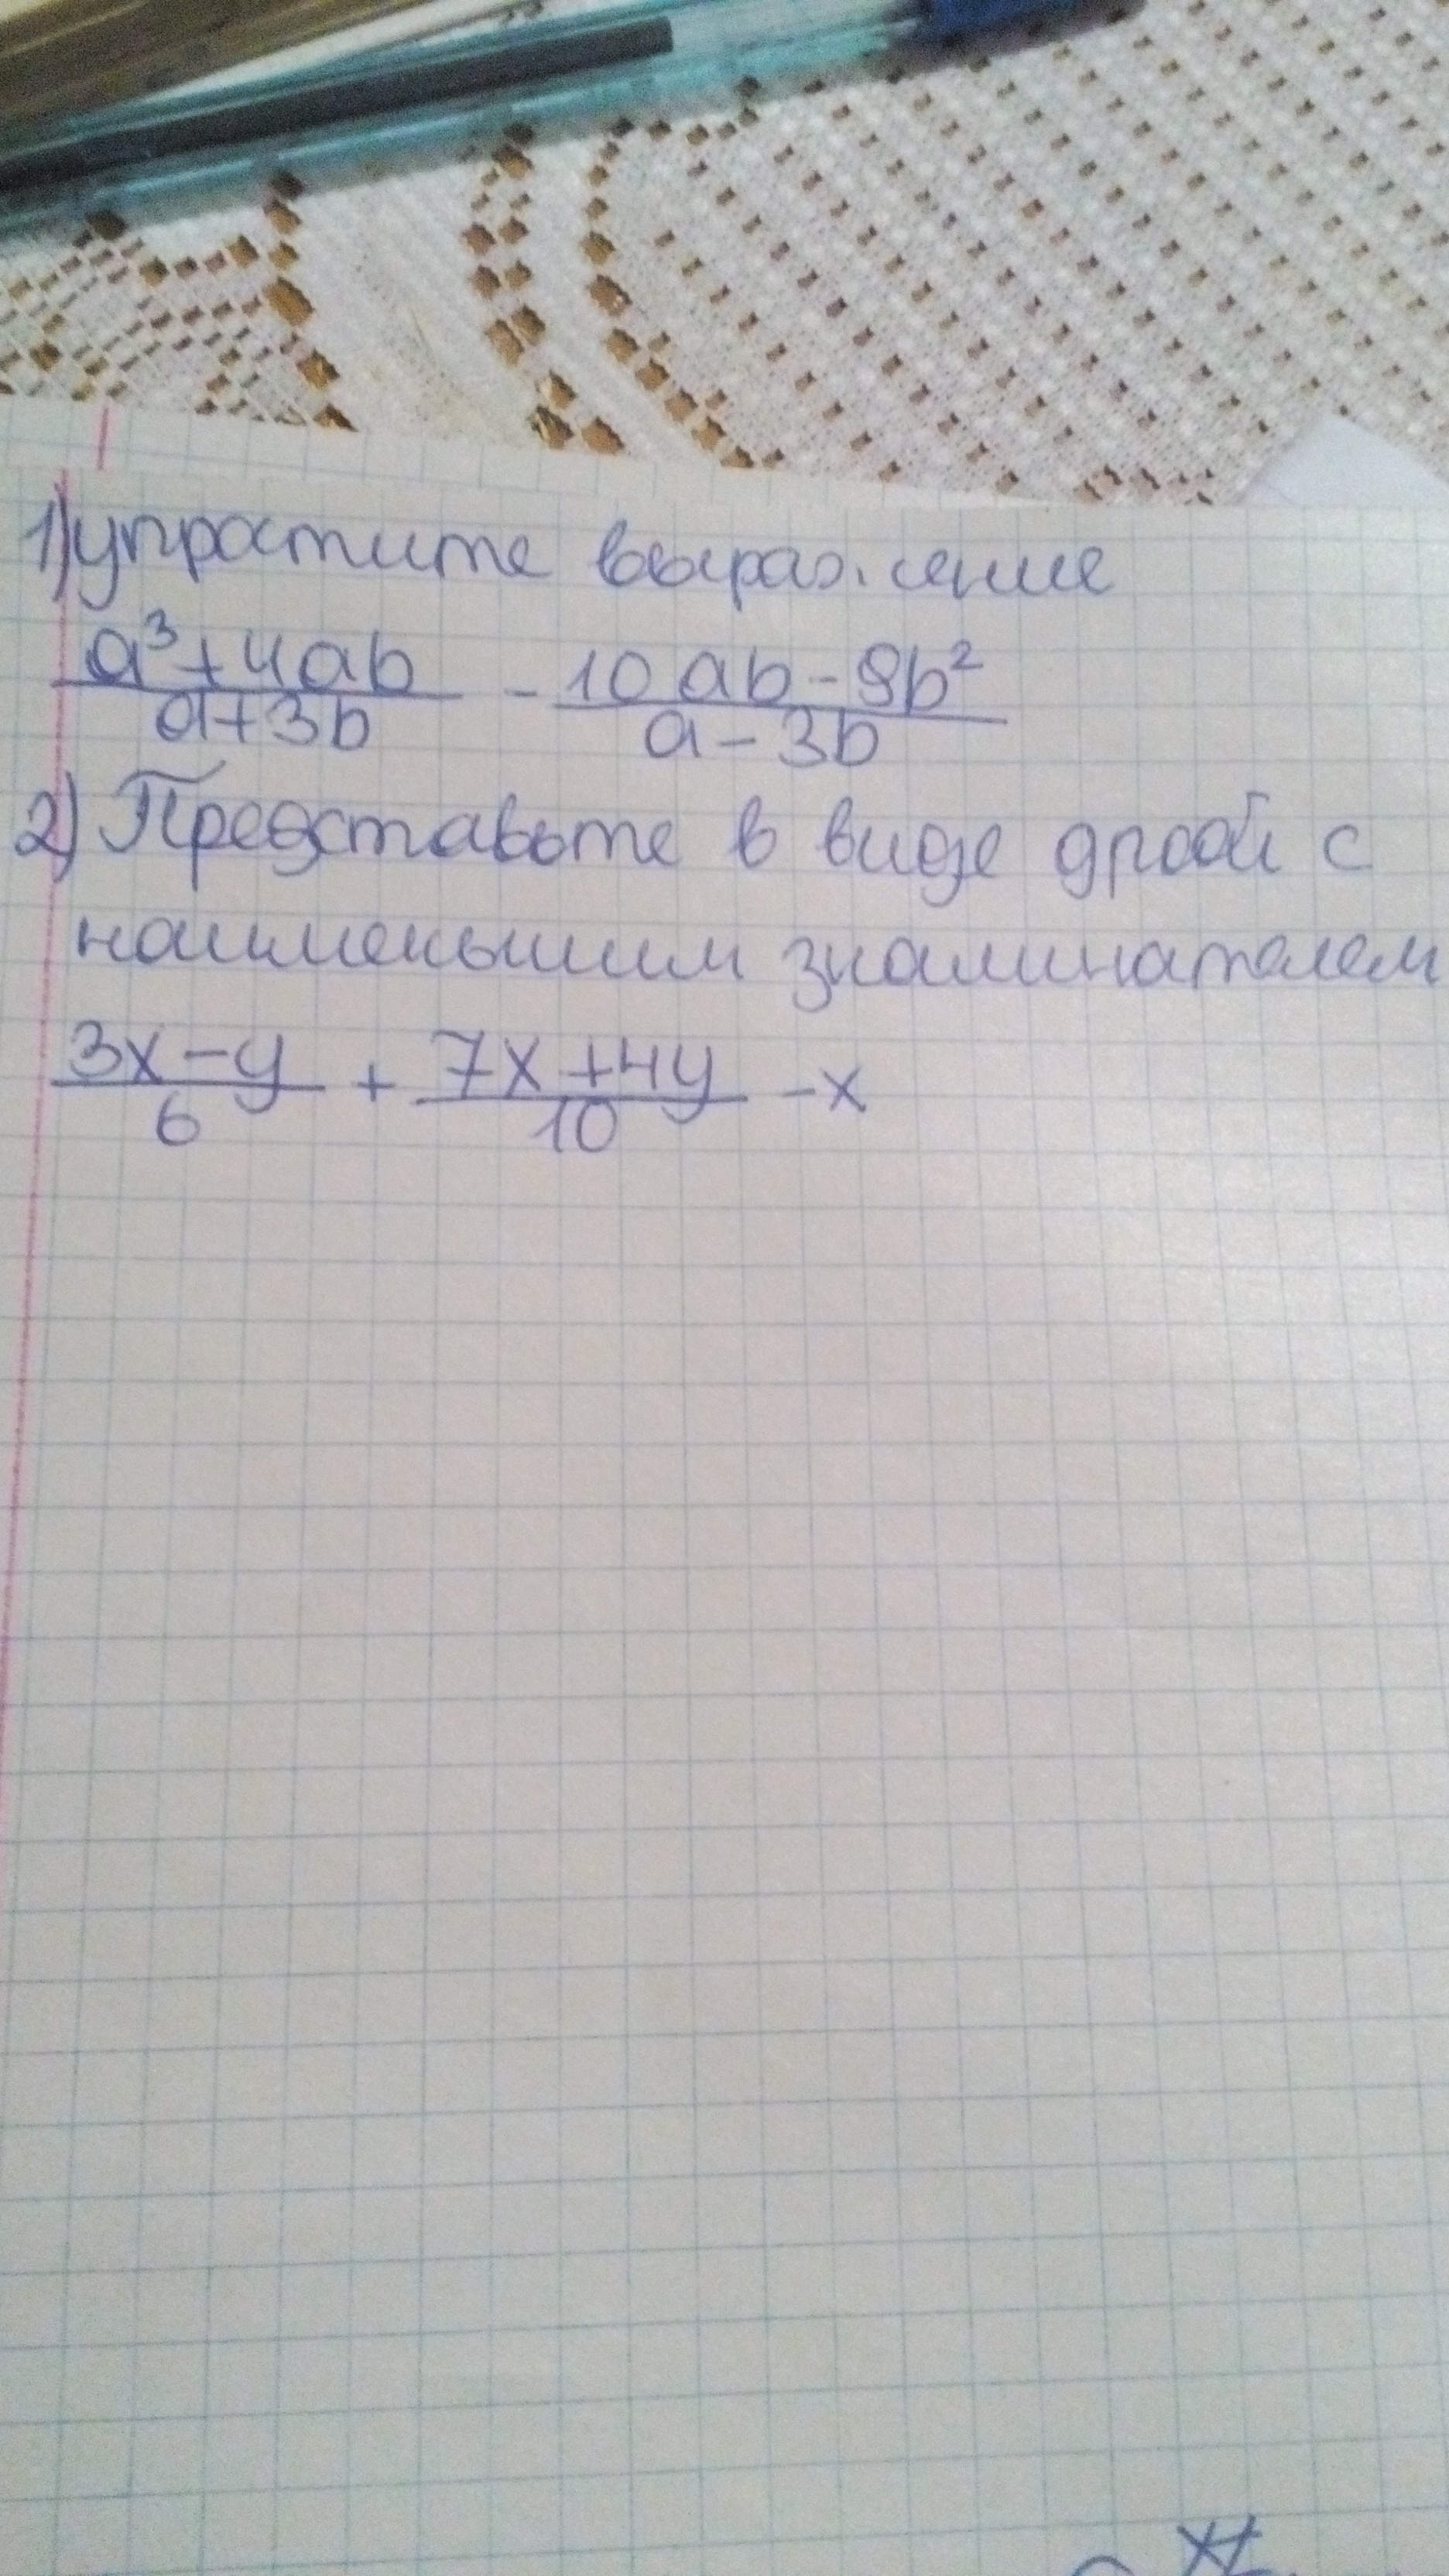 1) упростите выражение
a³+4ab/a+3b - 10ab-9b²/a-3b
2) Представьте в виде дробй с
наименьшим знаминателем
3x-y/6 + 7x+4y/10 -x